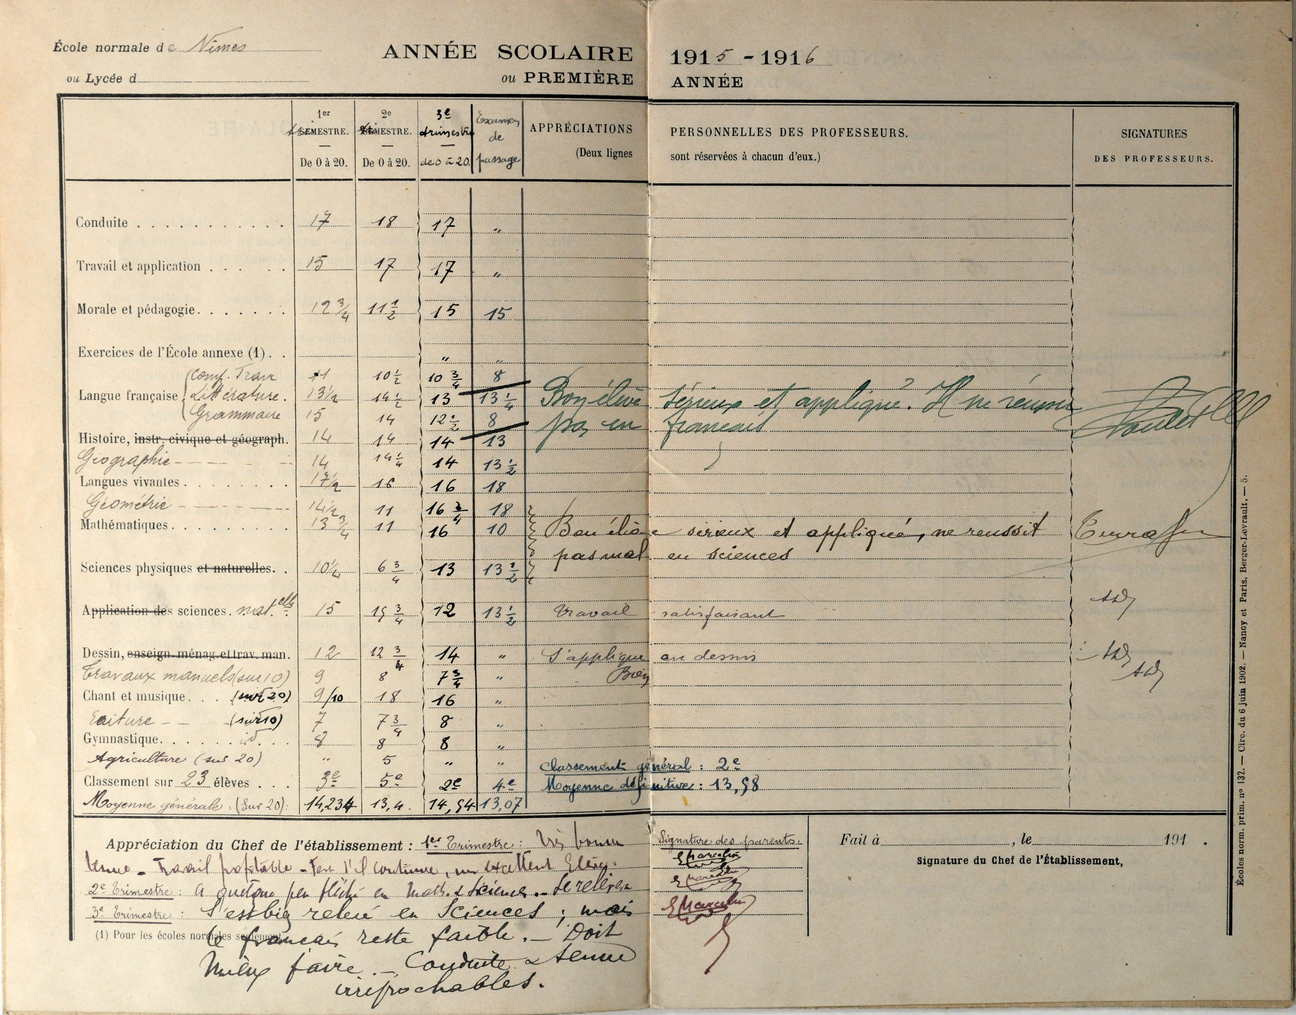 École normale de Nîmes
ou Lycée d
ANNÉE SCOLAIRE 1915 - 1916
ou PREMIÈRE ANNÉE
1er SEMESTRE. De 0 à 20.
2e SEMESTRE. De 0 à 20.
3e trimestre de 0 à 20.
Examen de passage
APPRÉCIATIONS PERSONNELLES DES PROFESSEURS.
(Deux lignes sont réservées à chacun d'eux.)
SIGNATURES
DES PROFESSEURS.
Conduite 17 18 17 "
Travail et application 15 17 17 "
Morale et pédagogie 12 3/4 11 1/2 15 15
Exercices de l'École annexe (1) " "
Comp. fran 11 10 1/2 10 3/4 8
Langue française Littérature. 13 1/2 14 1/2 13 13 1/4 Bon élève sérieux et appliqué. Il ne réussit
Grammaire 15 14 12 1/2 8 pas en français
Histoire, instr. civique et géograph. 14 14 14 13
Géographie 14 14 1/4 14 13 1/2
Langues vivantes 17 1/2 16 16 18
Géométrie 14 1/2 11 16 3/4 18
Mathématiques 13 3/4 11 16 10 Bon élève sérieux et appliqué, ne reussit
pas mal en sciences
Sciences physiques et naturelles. 10 1/4 6 3/4 13 13 1/2
Application des sciences. mat.elles 15 15 3/4 12 13 1/2 Travail satisfaisant
Dessin, enseign. ménag. et trav. man. 12 12 3/4 14 " S'applique au dessin
Travaux manuels (sur 10) 9 8 7 3/4 " Bien
Chant et musique (sur 20) 9/10 18 16
Ecriture (sur 10) 7 7 3/4 8 "
Gymnastique id. 8 8 8 "
Agriculture (sur 20) " 5 " " Classement général : 2e
Classement sur 23 élèves 3e 5e 2e 4e Moyenne définitive : 13,98
Moyenne générale. (Sur 20): 14,234 13,4. 14,54 13,07
Appréciation du Chef de l'établissement : 1er Trimestre : Très bonne
tenue - Travail profitable - Fera s'il continue, un excellent Elève.
2e Trimestre : A quelque peu fléchi en Math. & Sciences - Se relever
3e Trimestre : S'est bien relevé en Sciences ; mais
le français reste faible. — Doit
mieux faire. — Conduite & tenue
irréprochables.
(1) Pour les écoles normales seulement.
Signature des parents.
Fait à , le 191 .
Signature du Chef de l'établissement,
Écoles norm. prim. nº 132. — Circ. du 6 juin 1902. — Nancy et Paris, Berger-Levrault. — 5.